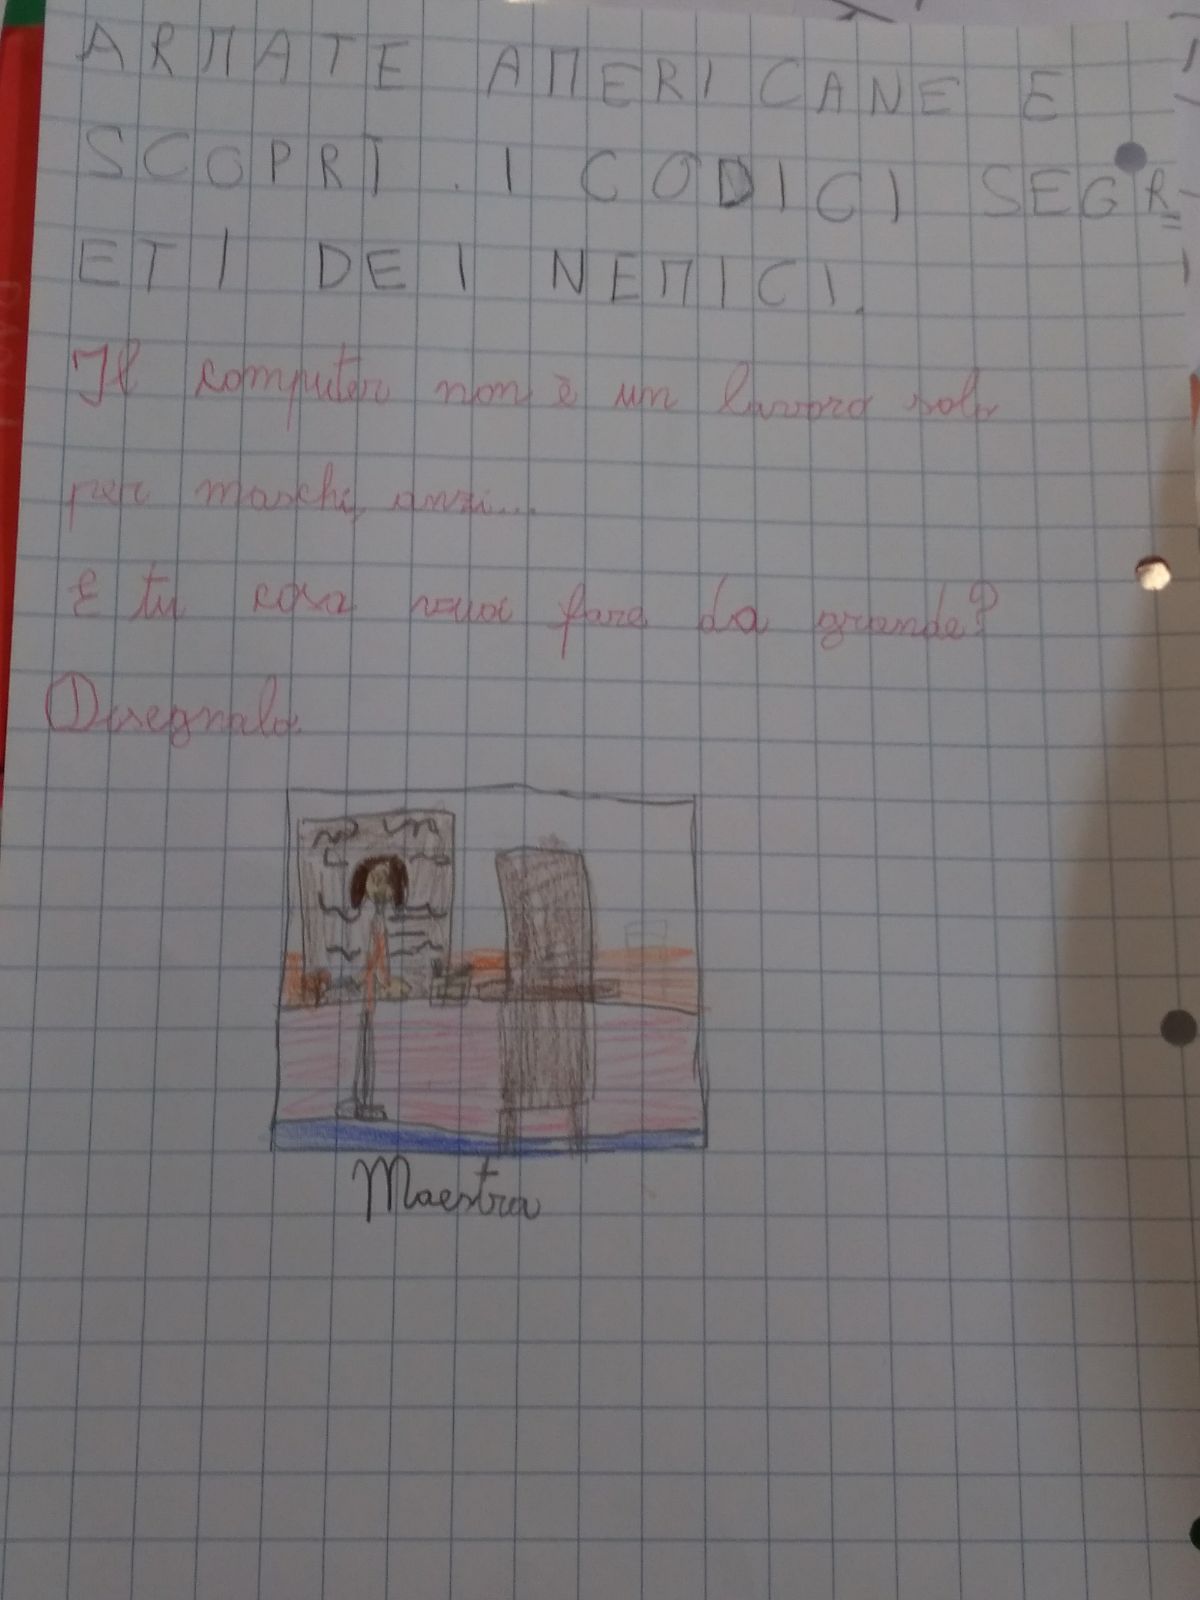 ARMATE AMERICANE E
SCOPRI . I CODICI SEGR
ETI DEI NEMICI.
Il computer non è un lavoro solo
per maschi, anzi...
E tu cosa vuoi fare da grande?
Disegnalo
Maestra